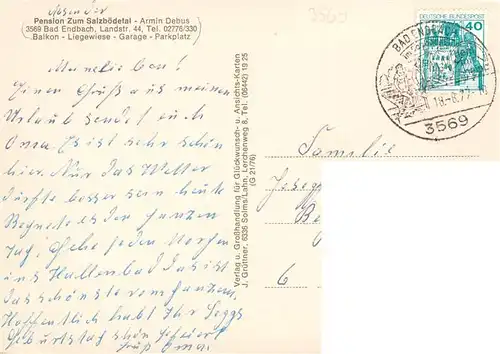 Absender
Pension Zum Salzbödetal - Armin Debus
3569 Bad Endbach, Landstr. 44, Tel. 02776/330
Balkon - Liegewiese - Garage - Parkplatz
Einen Gruß aus meinem
Urlaub sendet euch
Oma. Es ist sehr schön
hier. Nur das Wetter
dürfte besser sein heute
Regnete es den ganzen
Tag. Gehe jeden Morgen
ins Hallenbad das ist
das schönste vom ganzen.
Hoffentlich habt Ihr
Geburtstag schön gefeiert
Gruß Oma.
Verlag u. Großhandlung für Glückwunsch- u. Ansichts-Karten
J. Grüttner, 6336 Solms/Lahn, Lerchenweg 6, Tel. (06442) 18 25
(G 21/76)
3560
DEUTSCHE BUNDESPOST
40
BAD ENDBACH
3569
Familie
6